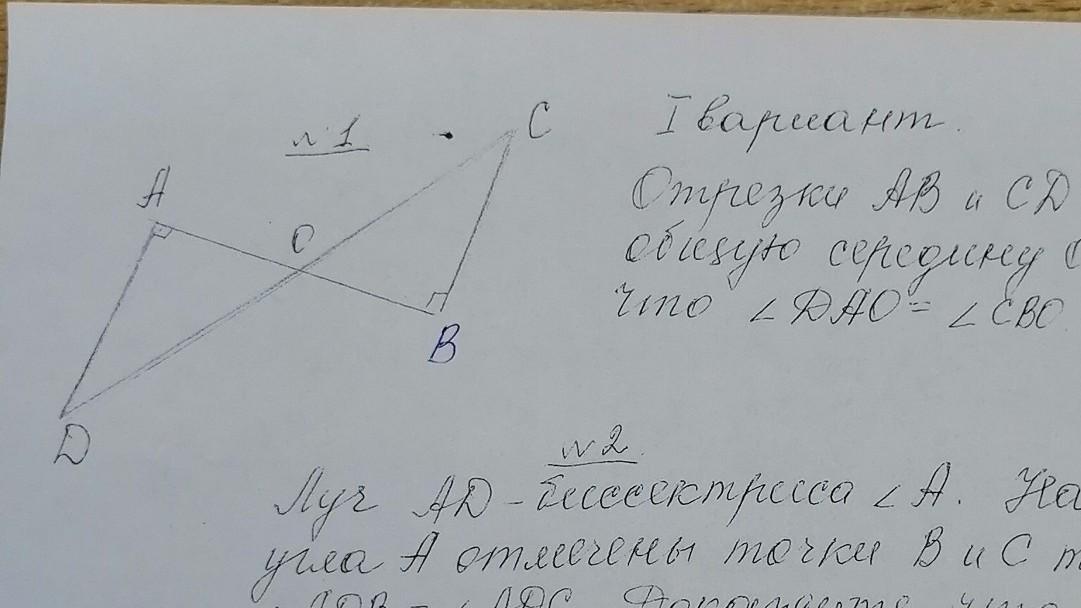 №1
C
A
O
B
D
I вариант.
Отрезки AB и CD
общую середину O
что ∠DAO = ∠CBO.
№2
Луч AD - биссектриса ∠A. На
угла A отмечены точки B и C т
∠ADB = ∠ADC. Докажите, что